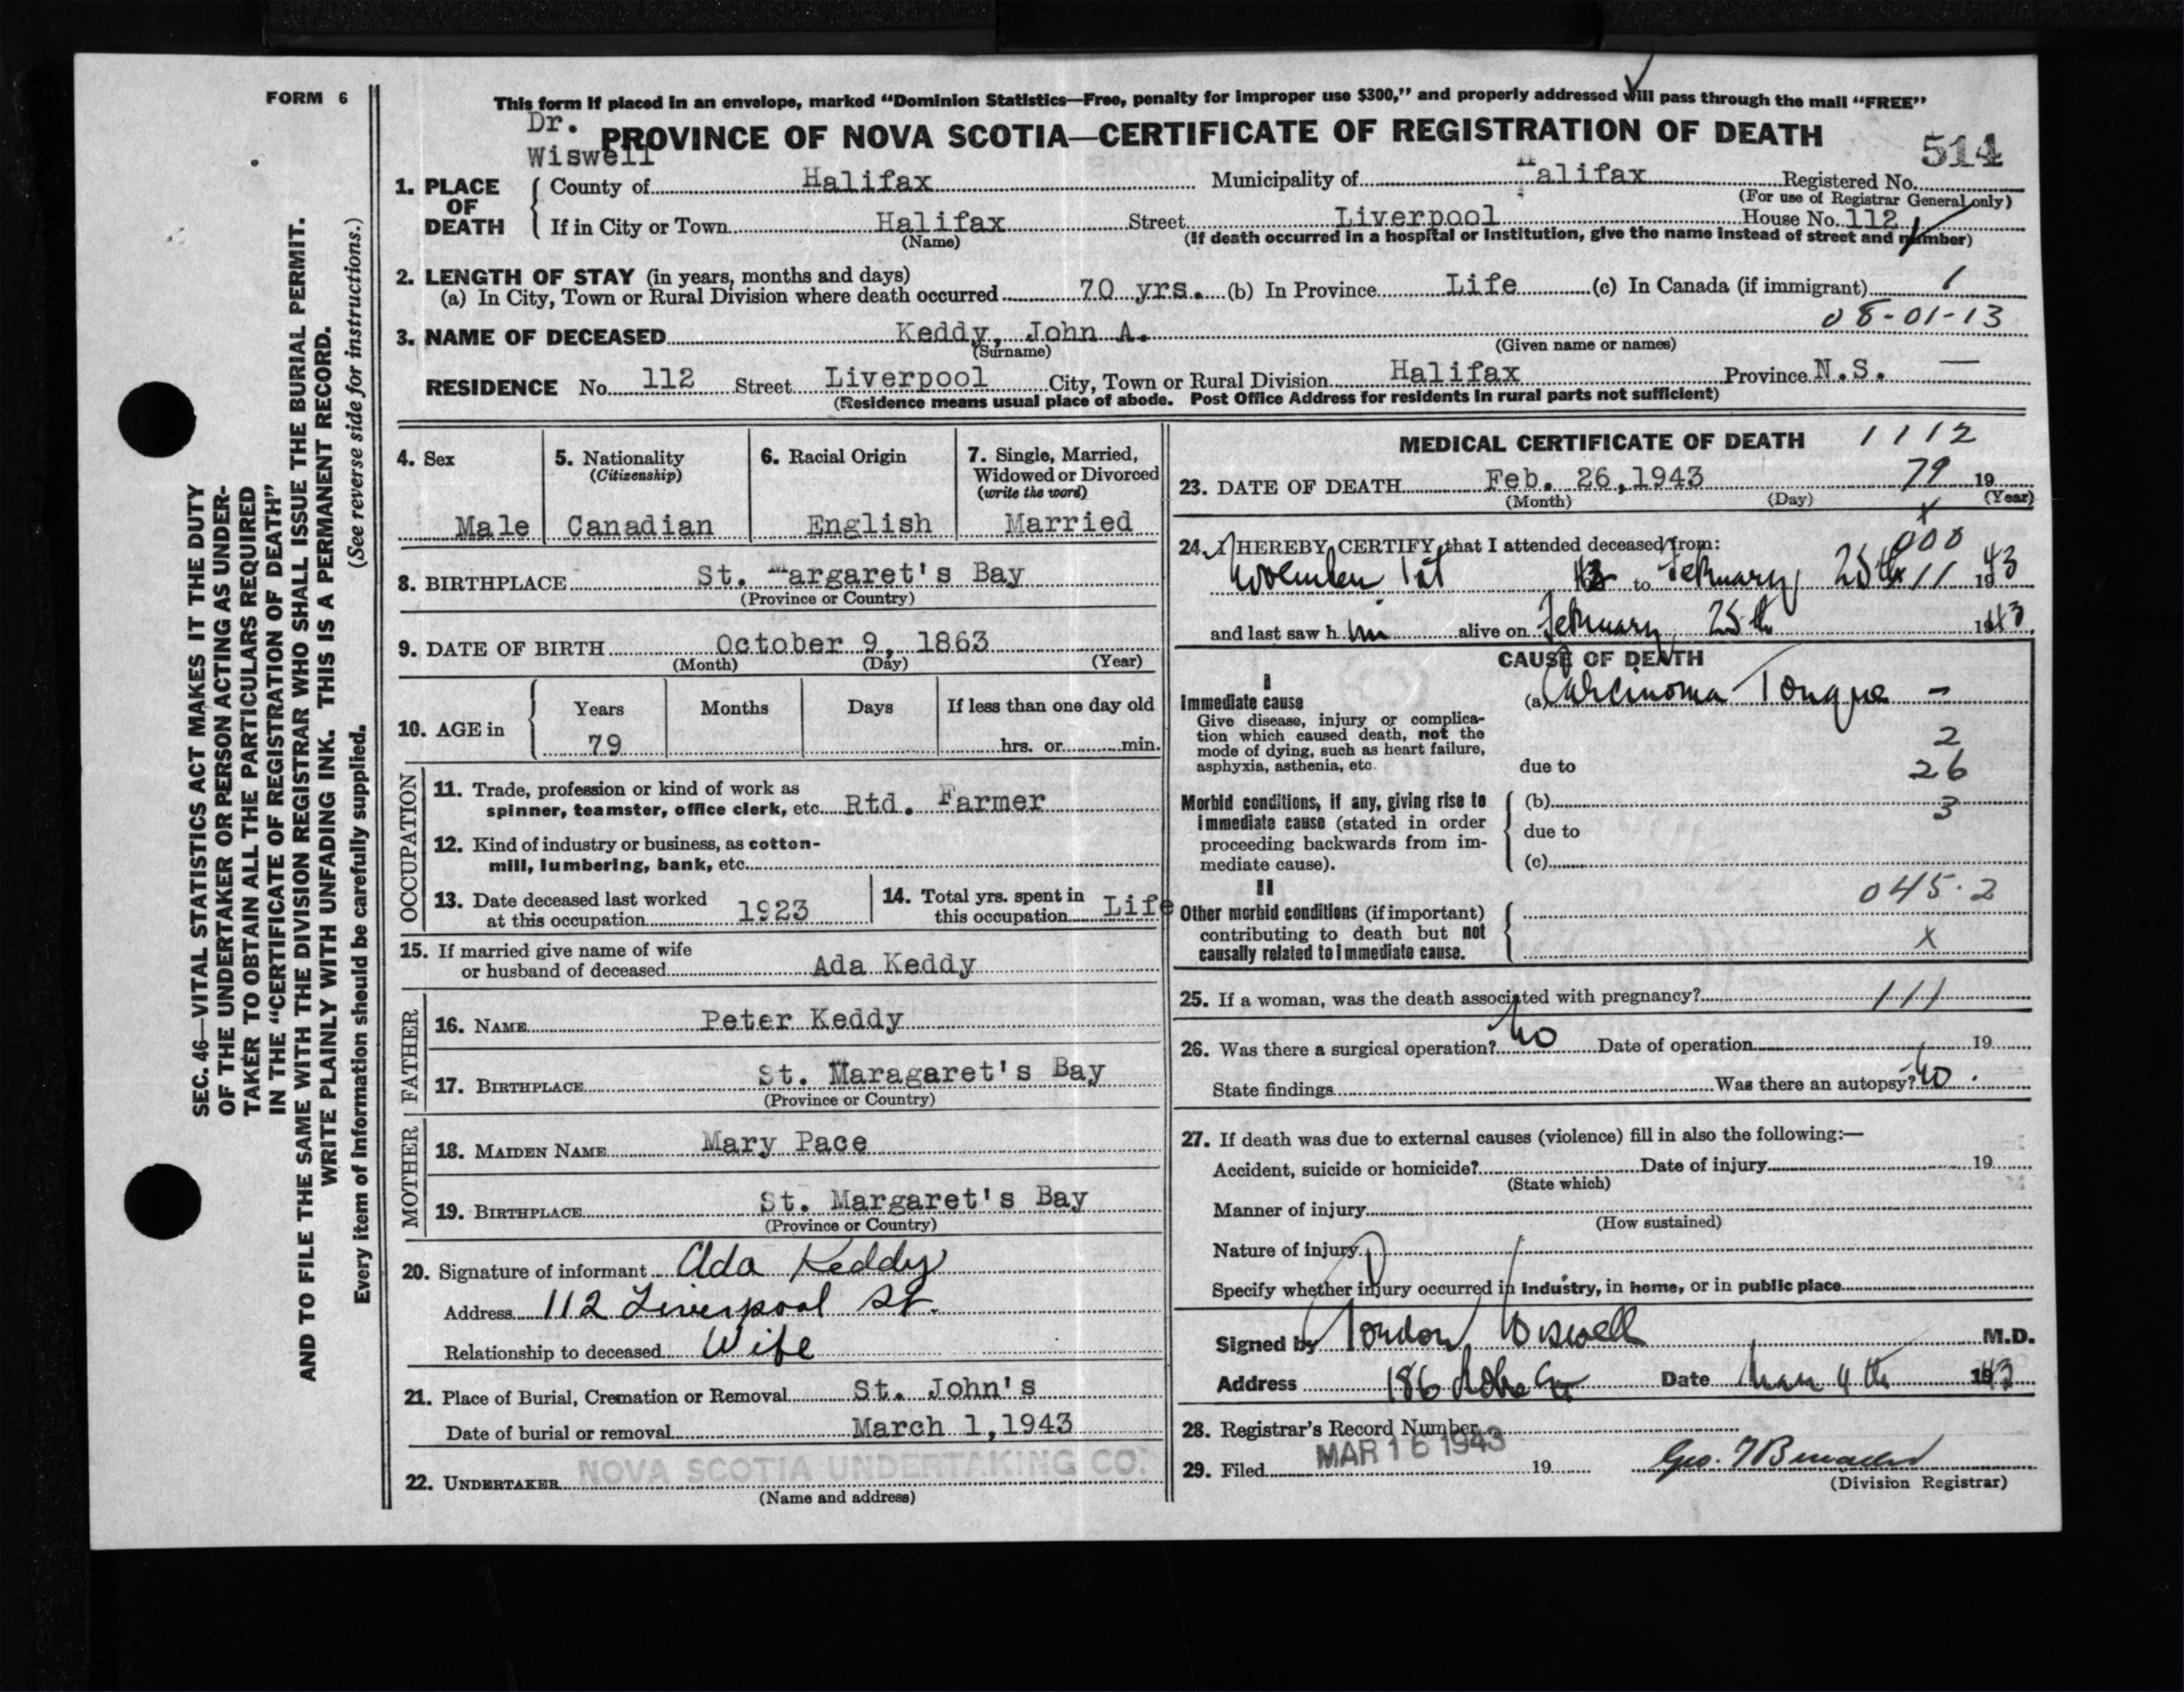 FORM 6
SEC. 46—VITAL STATISTICS ACT MAKES IT THE DUTY
OF THE UNDERTAKER OR PERSON ACTING AS UNDER-
TAKER TO OBTAIN ALL THE PARTICULARS REQUIRED
IN THE "CERTIFICATE OF REGISTRATION OF DEATH"
AND TO FILE THE SAME WITH THE DIVISION REGISTRAR WHO SHALL ISSUE THE BURIAL PERMIT.
WRITE PLAINLY WITH UNFADING INK. THIS IS A PERMANENT RECORD.
Every item of information should be carefully supplied. (See reverse side for instructions.)
This form if placed in an envelope, marked "Dominion Statistics—Free, penalty for improper use $300," and properly addressed will pass through the mail "FREE"
Dr.
Wiswell
PROVINCE OF NOVA SCOTIA—CERTIFICATE OF REGISTRATION OF DEATH
514
1. PLACE OF DEATH
County of Halifax Municipality of Halifax Registered No.
(For use of Registrar General only)
If in City or Town Halifax Street Liverpool House No. 112
(Name) (If death occurred in a hospital or institution, give the name instead of street and number)
2. LENGTH OF STAY (in years, months and days)
(a) In City, Town or Rural Division where death occurred 70 yrs. (b) In Province Life (c) In Canada (if immigrant) 1
08-01-13
3. NAME OF DECEASED Keddy, John A.
(Surname) (Given name or names)
RESIDENCE No. 112 Street Liverpool City, Town or Rural Division Halifax Province N.S. —
(Residence means usual place of abode. Post Office Address for residents in rural parts not sufficient)
4. Sex
Male
5. Nationality
(Citizenship)
Canadian
6. Racial Origin
English
7. Single, Married,
Widowed or Divorced
(write the word)
Married
8. BIRTHPLACE St. Margaret's Bay
(Province or Country)
9. DATE OF BIRTH October 9, 1863
(Month) (Day) (Year)
10. AGE in
Years Months Days If less than one day old
79 hrs. or min.
OCCUPATION
11. Trade, profession or kind of work as
spinner, teamster, office clerk, etc. Rtd. Farmer
12. Kind of industry or business, as cotton-
mill, lumbering, bank, etc.
13. Date deceased last worked
at this occupation 1923
14. Total yrs. spent in
this occupation Life
15. If married give name of wife
or husband of deceased Ada Keddy
FATHER
16. NAME Peter Keddy
17. BIRTHPLACE St. Maragaret's Bay
(Province or Country)
MOTHER
18. MAIDEN NAME Mary Pace
19. BIRTHPLACE St. Margaret's Bay
(Province or Country)
20. Signature of informant Ada Keddy
Address 112 Liverpool St.
Relationship to deceased Wife
21. Place of Burial, Cremation or Removal St. John's
Date of burial or removal March 1, 1943
22. UNDERTAKER NOVA SCOTIA UNDERTAKING CO.
(Name and address)
MEDICAL CERTIFICATE OF DEATH 1112
23. DATE OF DEATH Feb. 26, 1943 79 19
(Month) (Day) (Year)
x
24. I HEREBY CERTIFY that I attended deceased from: 000
November 1st to February 25th 11 1943
and last saw h im alive on February 25th 1943
CAUSE OF DEATH
I
Immediate cause
Give disease, injury or complica-
tion which caused death, not the
mode of dying, such as heart failure,
asphyxia, asthenia, etc.
(a) Carcinoma Tongue —
2
due to 26
Morbid conditions, if any, giving rise to
immediate cause (stated in order
proceeding backwards from im-
mediate cause).
(b) 3
due to
(c)
II
Other morbid conditions (if important)
contributing to death but not
causally related to immediate cause.
045.2
x
25. If a woman, was the death associated with pregnancy? 111
26. Was there a surgical operation? no Date of operation 19
State findings Was there an autopsy? no.
27. If death was due to external causes (violence) fill in also the following:—
Accident, suicide or homicide? Date of injury 19
(State which)
Manner of injury
(How sustained)
Nature of injury
Specify whether injury occurred in industry, in home, or in public place
Signed by Wiswell M.D.
Address 186 Date Mar 4th 1943
28. Registrar's Record Number
29. Filed MAR 16 1943 19 Geo.
(Division Registrar)